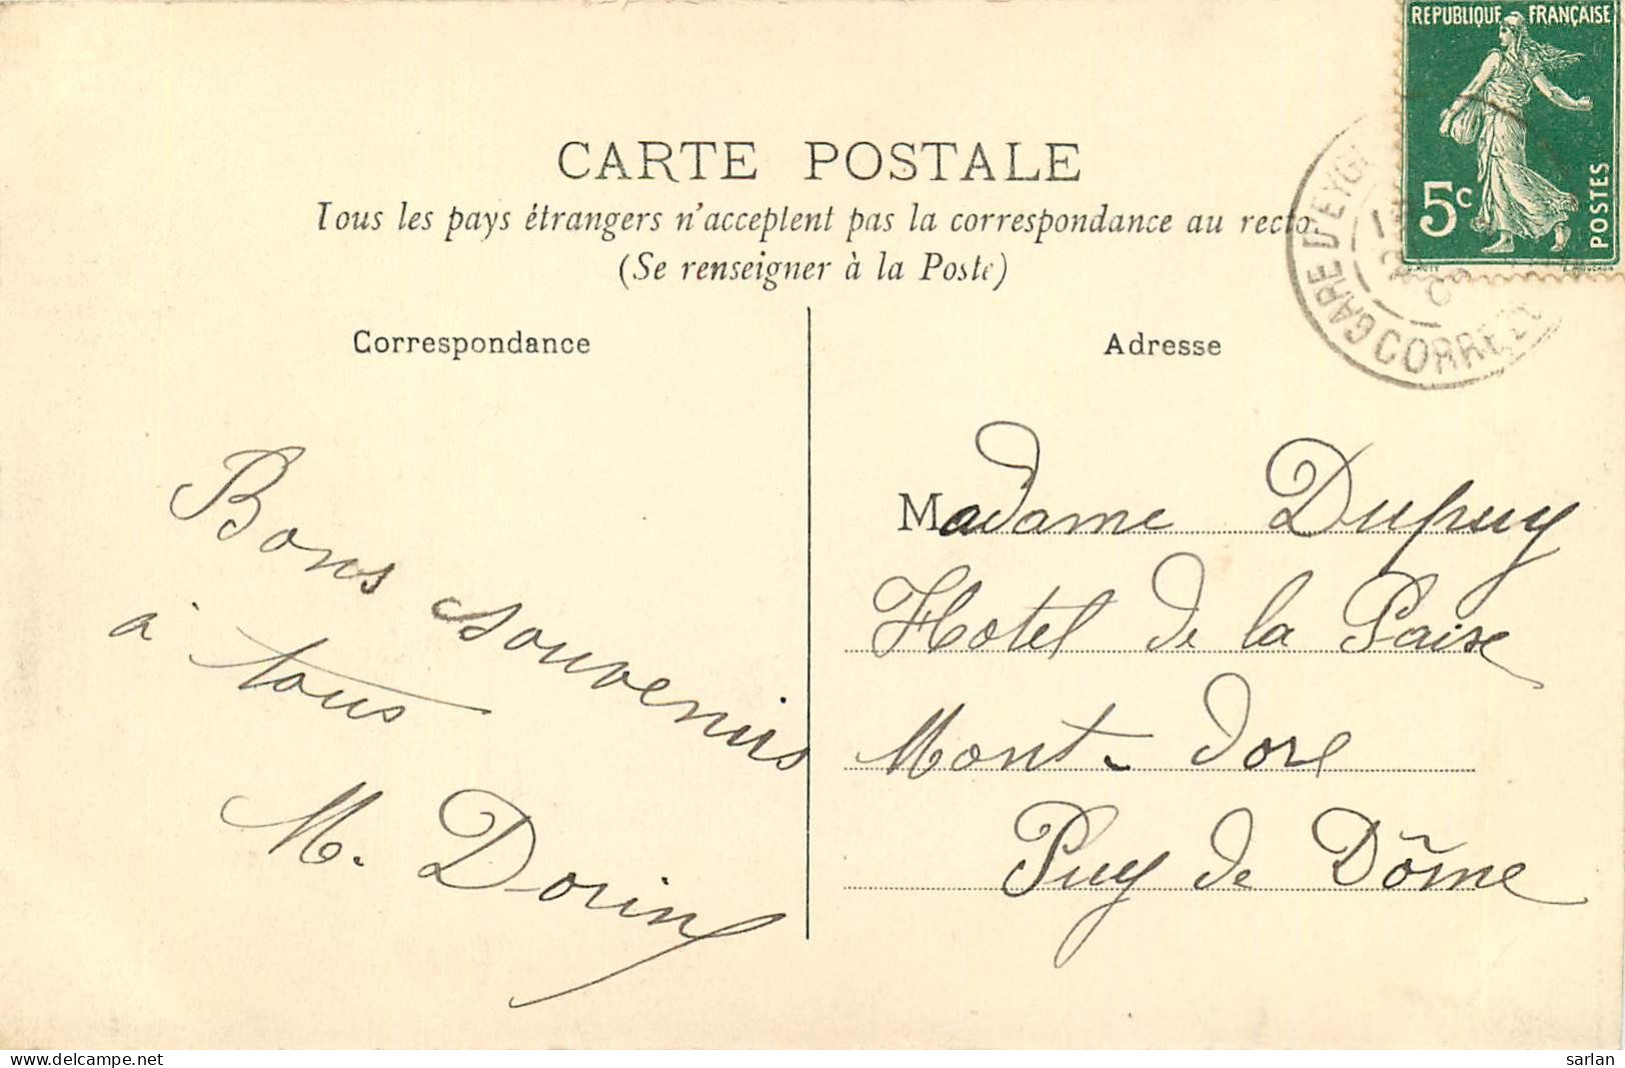 RÉPUBLIQUE FRANÇAISE
5c
POSTES
GARE D'EYG
CORREZE
CARTE POSTALE
Tous les pays étrangers n'acceptent pas la correspondance au recto.
(Se renseigner à la Poste)
Correspondance
Bons souvenirs
à tous
M. Dorin
Adresse
Madame Dupuy
Hotel de la Paise
Mont-dore
Puy de Dôme
sarlan